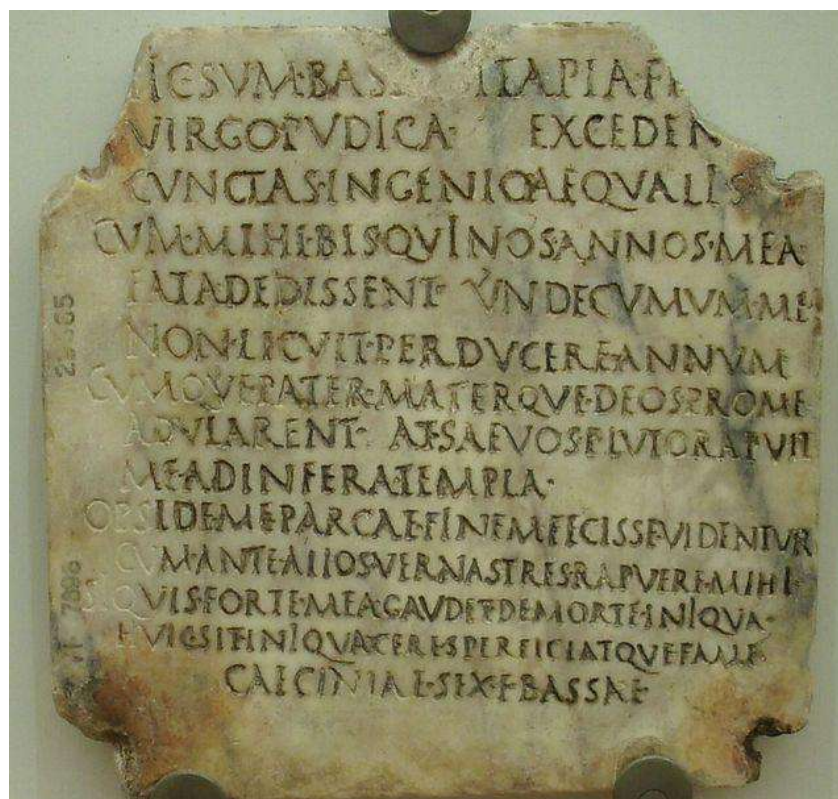 HIC·SVM· PIA·
VIRGO PVDICA· EXCEDEN
CVNCTAS·INGENIO AEQVALIS
CVM·MIHI·BIS·QVINOS·ANNOS·MEA
FATA DEDISSENT· VNDECVMVM·ME
NON·LICVIT·PERDVCERE·ANNVM
CVMQVE PATER·MATERQVE·DEOS PRO ME
ADVLARENT· AT·SAEVOS PLVTO RAPVIT
ME·AD INFERA·TEMPLA·
OPSIDE·ME PARCAE·FINEM FECISSE VIDENTVR
CVM·ANTE·ALIOS VERNAS TRES·RAPVERE·MIHI·
SI QVIS·FORTE·MEA·GAVDET·DE MORTE·INIQVA·
HVIC·SIT·INIQVA CERES PERFICIATQVE FAME
CAECINIAE·SEX·F·BASSAE